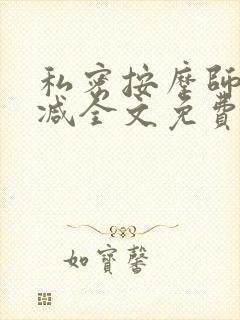 私密按摩師
減全文免費
如寶馨